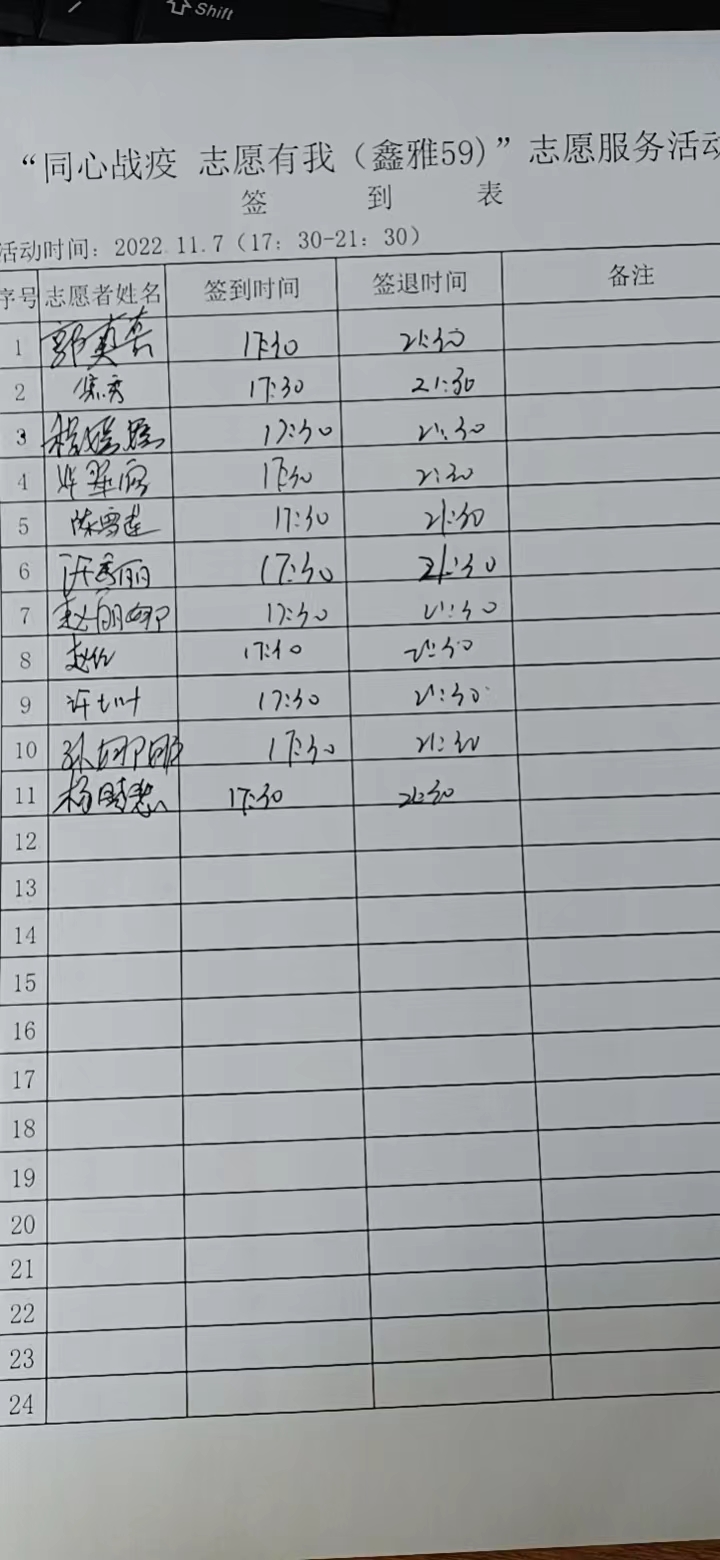 Shift
“同心战疫 志愿有我（鑫雅59)”志愿服务活动
签 到 表
活动时间：2022.11.7（17：30-21：30）
序号 志愿者姓名 签到时间 签退时间 备注
1 17:30 21:30
2 焦秀 17:30 21:30
3 程媛媛 17:30 21:30
4 17:30 21:30
5 陈雪莲 17:30 21:30
6 许秀丽 17:30 21:30
7 赵丽娜 17:30 21:30
8 赵红 17:30 21:30
9 17:30 21:30
10 孙娜娜 17:30 21:30
11 杨晓慧 17:30 21:30
12
13
14
15
16
17
18
19
20
21
22
23
24